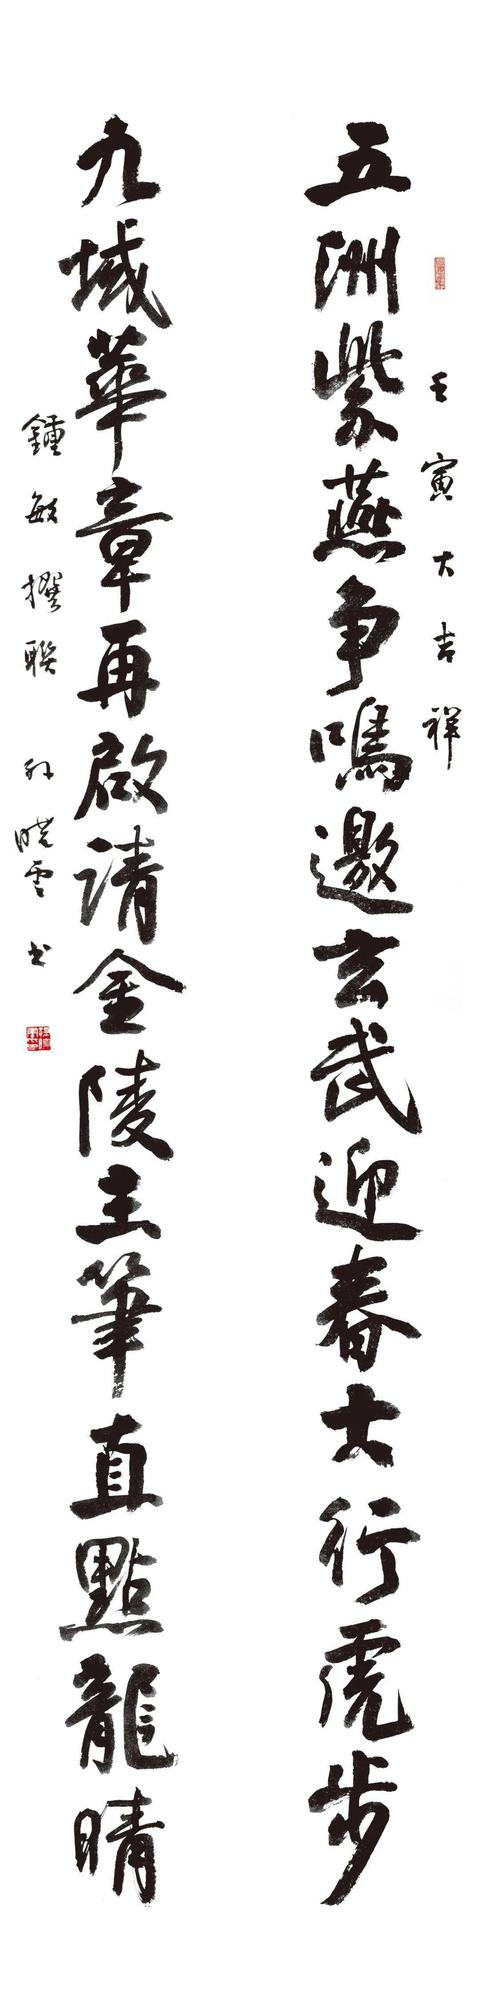 壬寅大吉祥
五洲紫燕争鳴邀玄武迎春大行虎步
九域華章再啟請金陵主筆直點龍睛
鍾敏撰聯 孙晓雲书